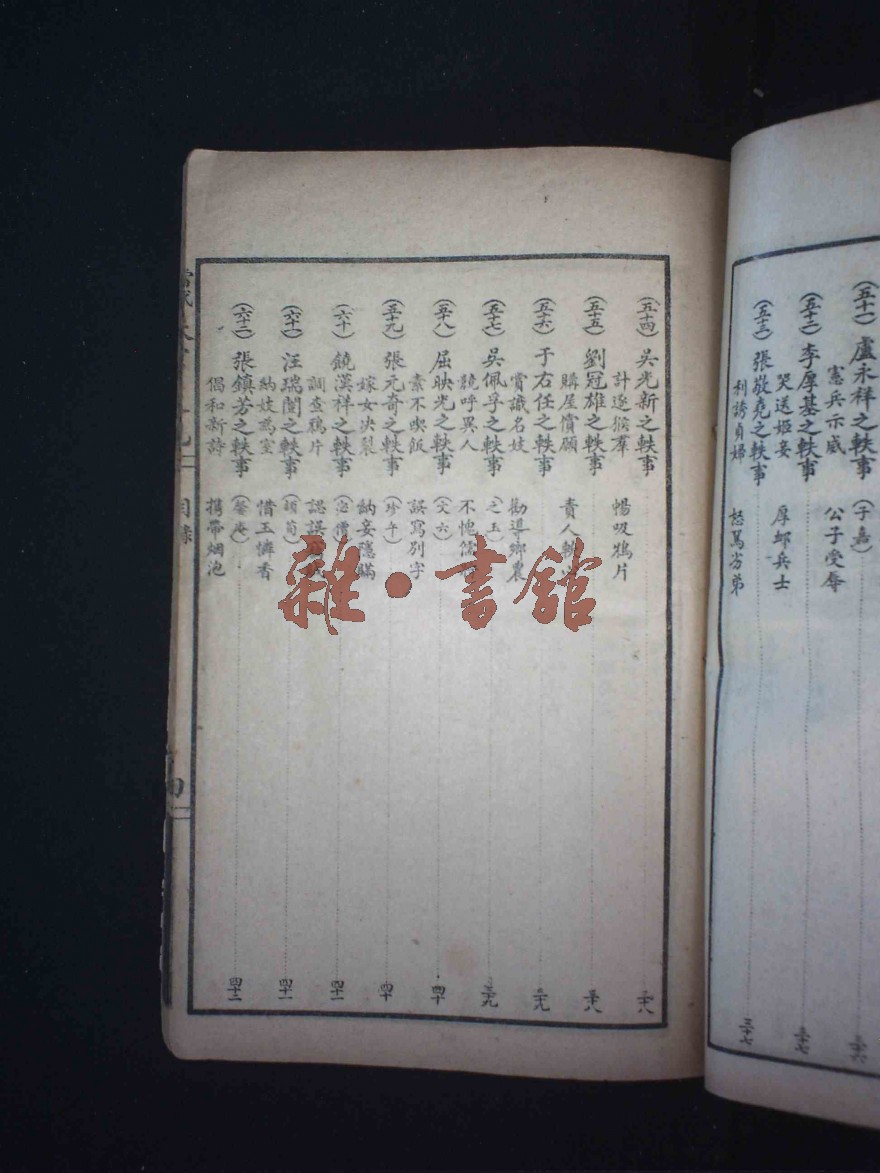 (五十一)盧永祥之軼事(子嘉)
憲兵示威 公子受辱
(五十二)李厚基之軼事
哭送姬妾 厚卹兵士
(五十三)張敬堯之軼事 三十七
利誘貞婦 怒罵劣弟
(五十四)吳光新之軼事 三十八
計逐猴羣 暢吸鴉片
(五十五)劉冠雄之軼事 三十八
購屋償願 責人
(五十六)于右任之軼事 三十九
賞識名妓 勸導鄉農
(五十七)吳佩孚之軼事(之玉) 三十九
競呼異人 不愧
(五十八)屈映光之軼事(文六) 四十
素不喫飯 誤寫別字
(五十九)張元奇之軼事(珍午) 四十
嫁女决裂 納妾隱瞞
(六十)饒漢祥之軼事(宓僧) 四十一
調查鴉片 認誤
(六十一)汪瑞闓之軼事(頡荀) 四十一
納妓為室 惜玉憐香
(六十二)張鎮芳之軼事(馨庵) 四十二
倡和新詩 攜帶烟泡
目錄
四
雜·書館